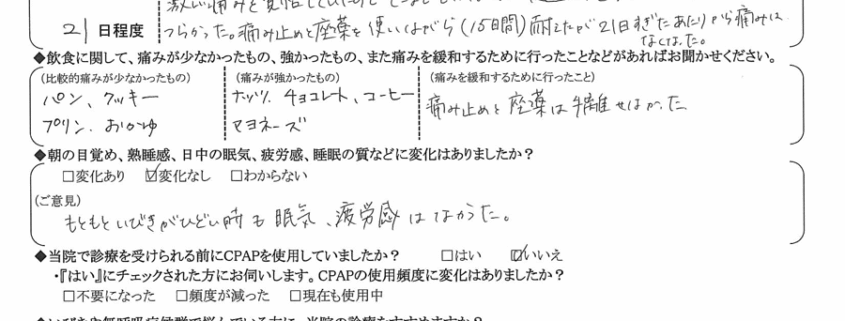 激しい痛みを覚悟していたけど
21日程度
つらかった。痛み止めと座薬を使いながら(15日間)耐えたが21日すぎたあたりから痛みは
なくなった。
◆飲食に関して、痛みが少なかったもの、強かったもの、また痛みを緩和するために行ったことなどがあればお聞かせください。
(比較的痛みが少なかったもの) (痛みが強かったもの) (痛みを緩和するために行ったこと)
パン、クッキー ナッツ、チョコレート、コーヒー 痛み止めと座薬は手離せなかった
プリン、おかゆ マヨネーズ
◆朝の目覚め、熟睡感、日中の眠気、疲労感、睡眠の質などに変化はありましたか?
□変化あり ☑変化なし □わからない
(ご意見)
もともといびきがひどい時も眠気、疲労感はなかった。
◆当院で診療を受けられる前にCPAPを使用していましたか? □はい ☑いいえ
・『はい』にチェックされた方にお伺いします。CPAPの使用頻度に変化はありましたか?
□不要になった □頻度が減った □現在も使用中